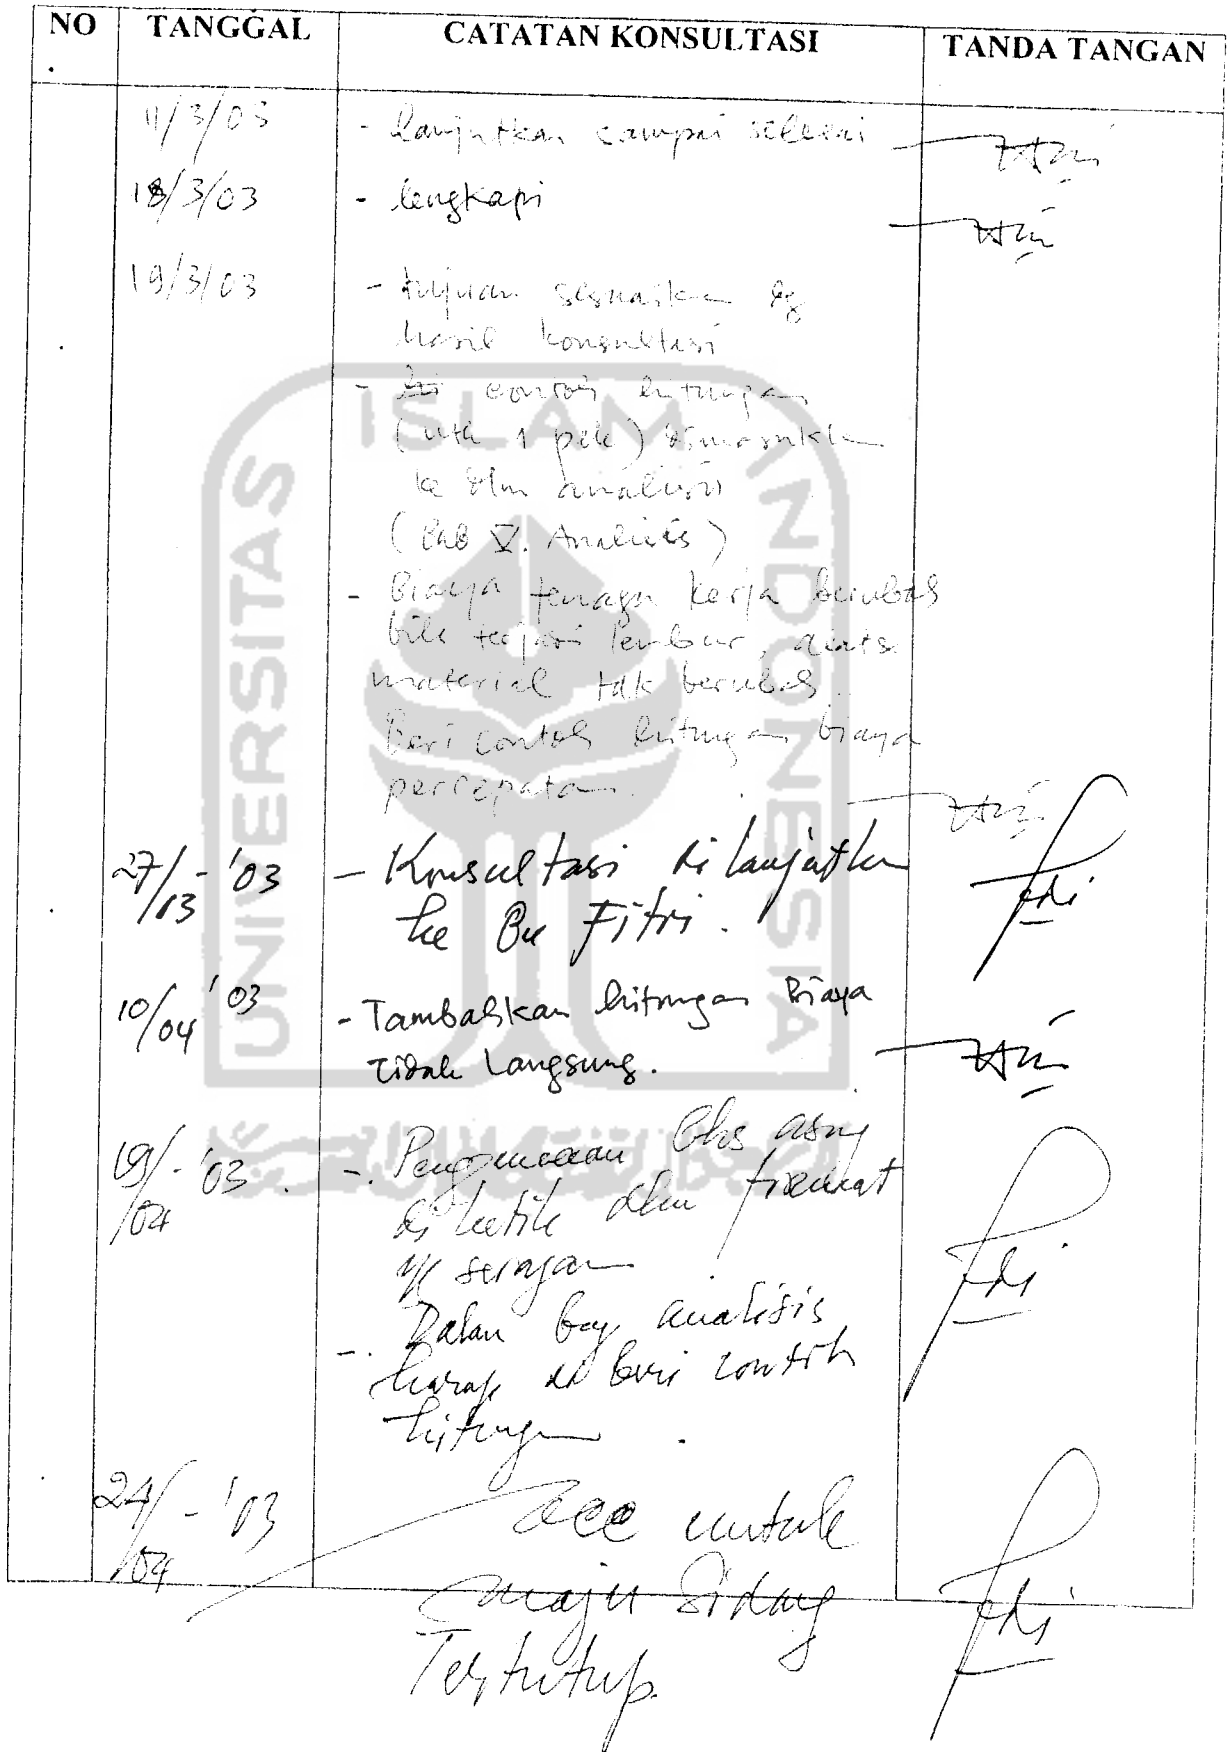 NO. TANGGAL CATATAN KONSULTASI TANDA TANGAN
11/3/03 - lanjutkan sampai selesai
18/3/03 - lengkapi
19/3/03 - tujuan sesuaikan dg
hasil konsultasi
- contoh hitungan
(utk 1 pek) dimasukkan
ke dlm analisis
(Bab V. Analisis)
- Biaya tenaga kerja berubah
bila terjadi lembur,
material tdk berubah.
Beri contoh hitungan biaya
percepatan.
27/03-'03 - Konsultasi dilanjutkan
ke Bu Fitri.
10/04 '03 - Tambahkan hitungan Biaya
Tidak Langsung.
19/04-'03. -. Penggunaan Bhs asing
di ketik dlm format
yg seragam
-. Dalam bag analisis
harap di beri contoh
hitungan.
24/04-'03 acc untuk
maju Sidang
Tertutup.
UNIVERSITAS ISLAM INDONESIA